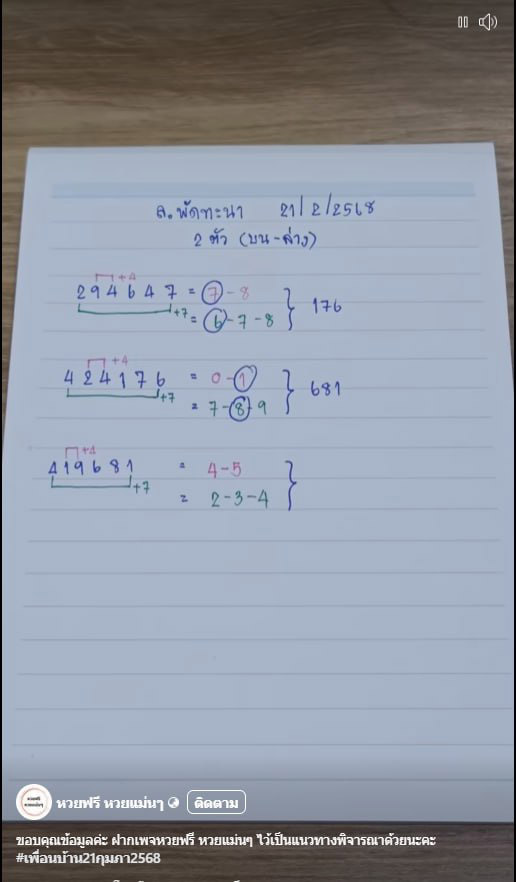 ล.พัฒทะนา 21/2/2568
2 ตัว (บน-ล่าง)
+4
294647 = 7-8
+7 = 6-7-8 } 176
+4
424176 = 0-1
+7 = 7-8-9 } 681
+4
419681 = 4-5
+7 = 2-3-4 }
หวยฟรี หวยแม่นๆ
หวยฟรี หวยแม่นๆ ติดตาม
ขอบคุณข้อมูลค่ะ ฝากเพจหวยฟรี หวยแม่นๆ ไว้เป็นแนวทางพิจารณาด้วยนะคะ
#เพื่อนบ้าน21กุมภา2568